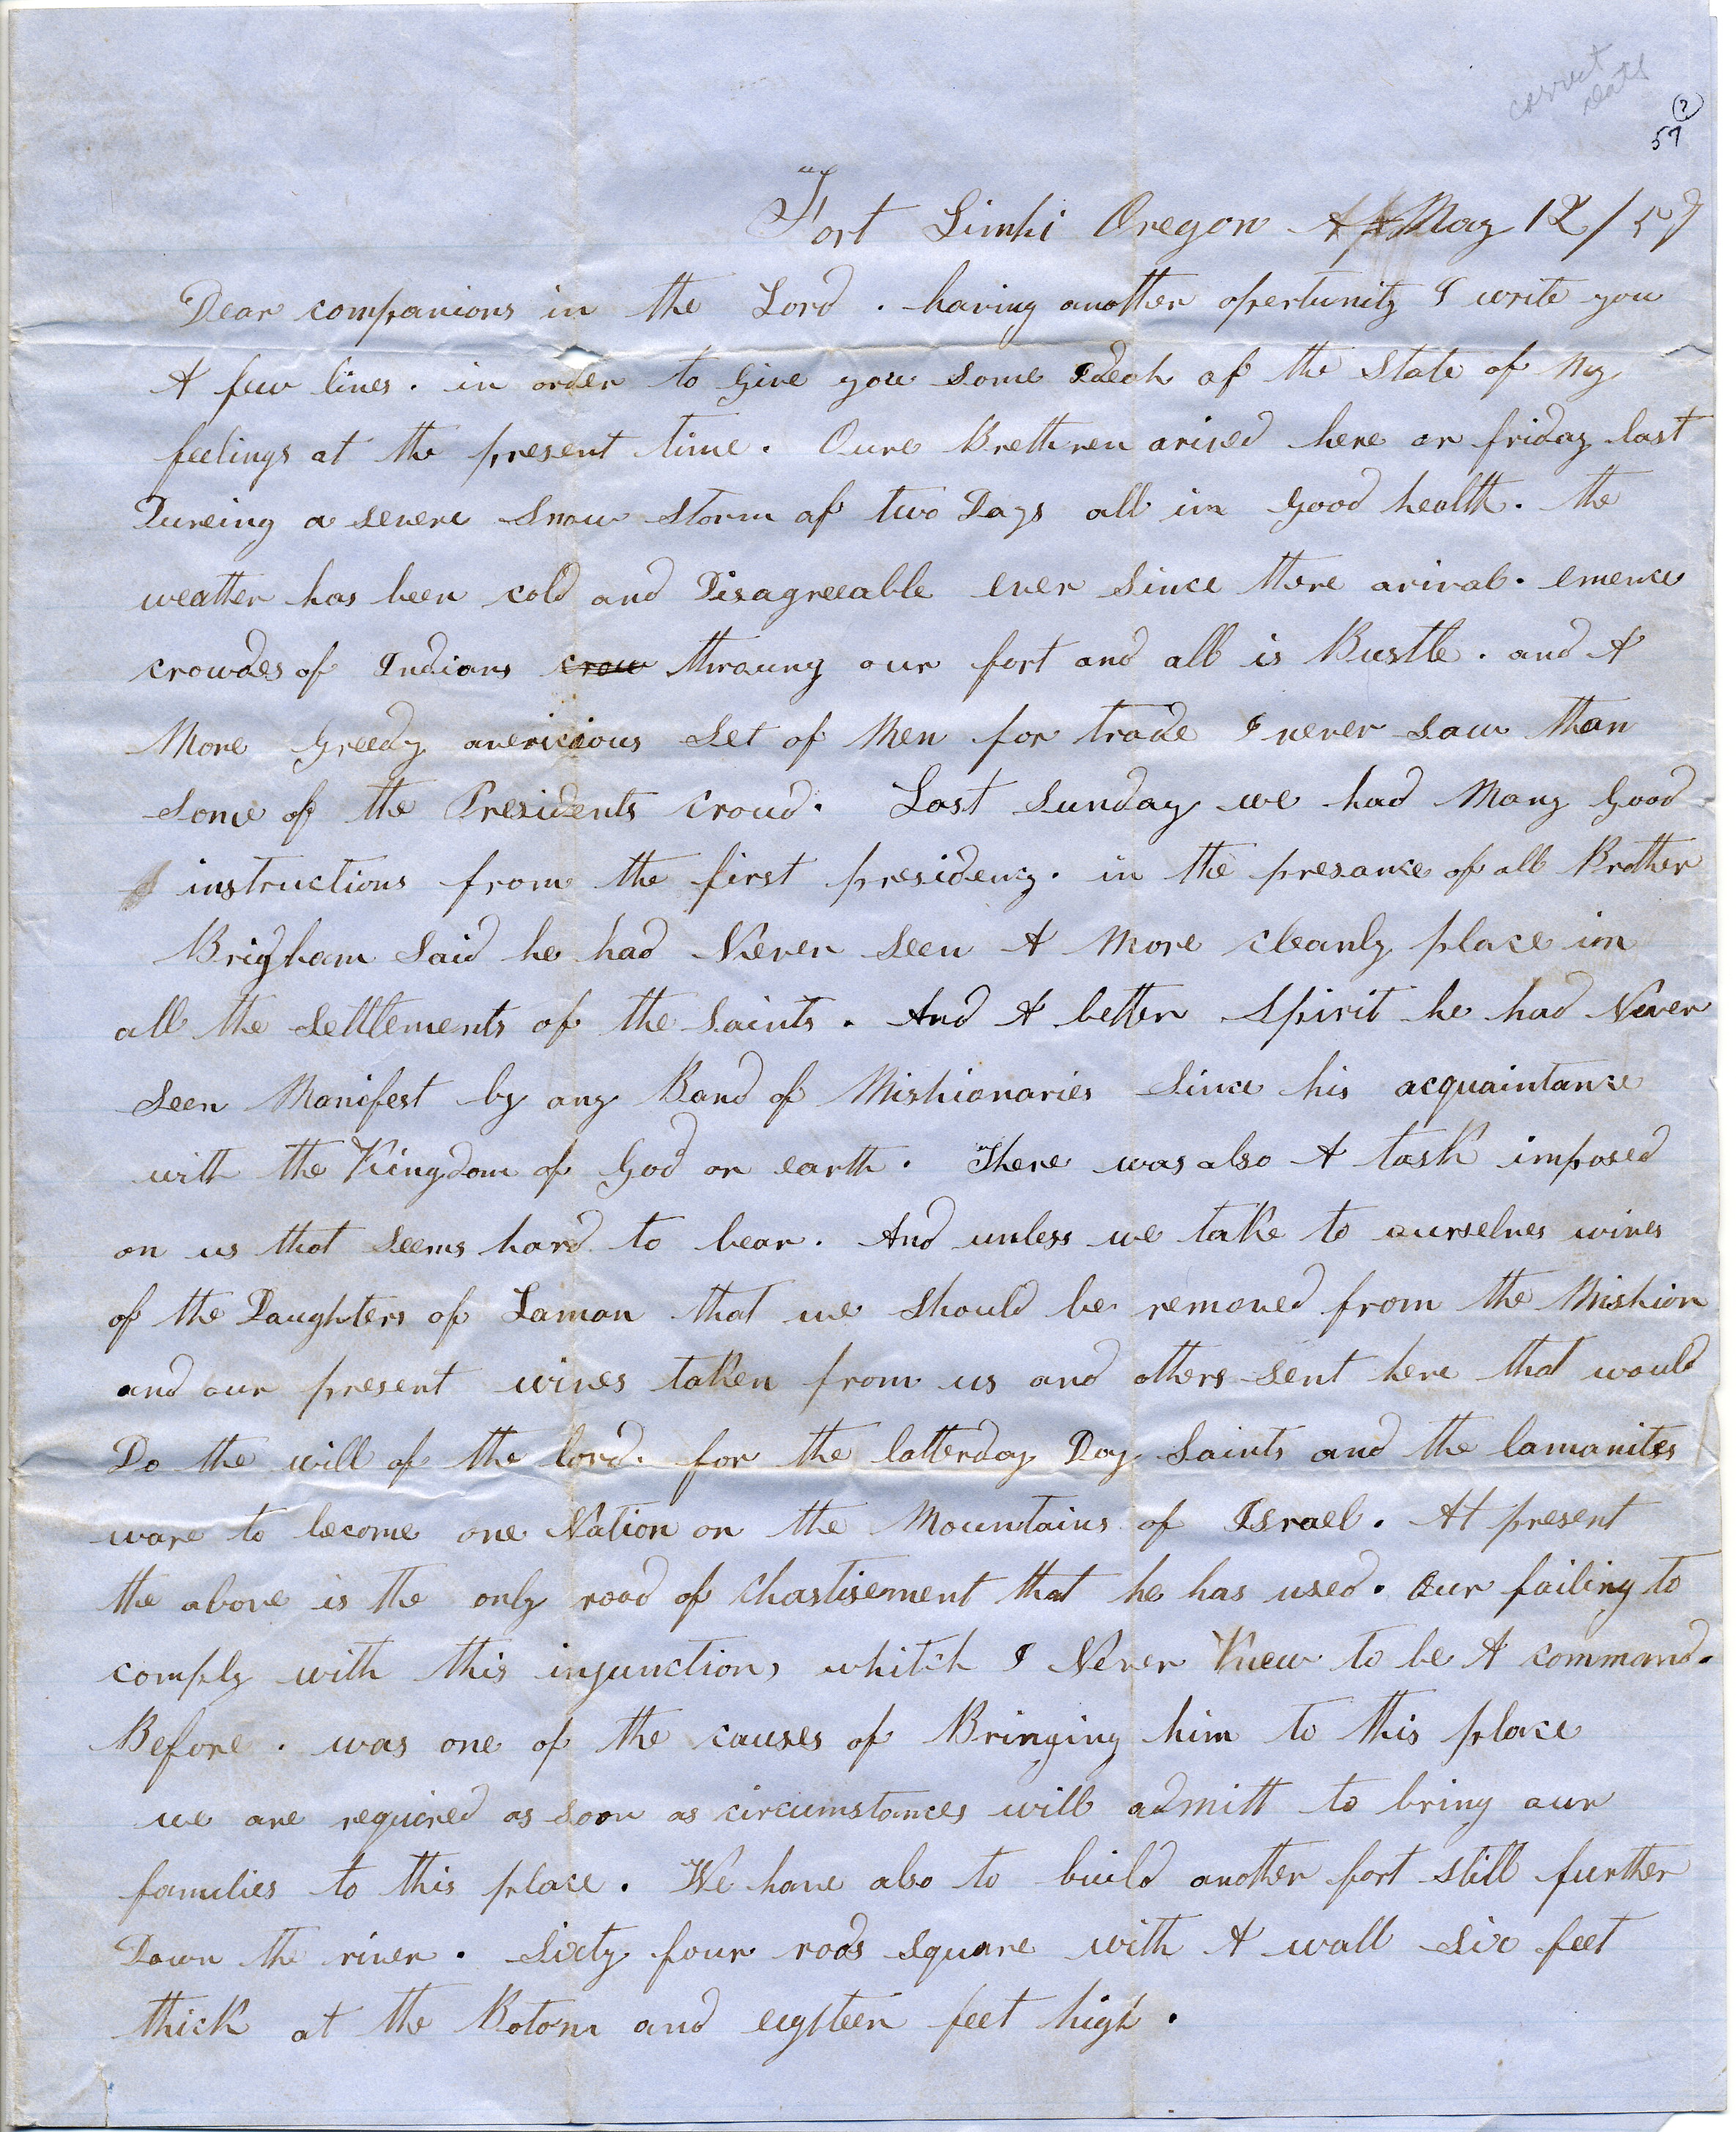 correct
date
(?)
57
Fort Limhi Oregon May 12/57
Dear companions in the Lord. having another opertunity I write you
A few lines. in order to Give you some Ideah of the State of My
feelings at the present time. Oure Brethren arived here on friday last
Dureing a severe Snow Storm of two Days all in Good health. the
weather has been cold and Disagreeable ever Since there arival. emence
crowdes of Indians crow throung our fort and all is Bustle. and A
More Greedy avericious Set of Men for trade I never saw than
some of the Presidents croud. Last Sunday we had Many Good
instructions from the first presidency. in the presance of all Brother
Brigham Said he had Never seen A More cleanly place in
all the Settlements of the Saints. And A better Spirit he had Never
Seen Manifest by any Band of Mishionaries Since his acquaintance
with the Kingdom of God on earth. There was also A task imposed
on us that seems hard to bear. And unless we take to ourselves wives
of the Daughters of Laman that we should be removed from the Mishion
and our present wives taken from us and others sent here that would
Do the will of the lord. for the latterday Day Saints and the lamanites
ware to become one Nation on the Mountains of Israel. At present
the above is the only road of Chastisement that he has used. Our failing to
comply with this injunction, whitch I Never Knew to be A command.
Before. was one of the causes of Bringing him to this place
we are required as soon as circumstances will admitt to bring our
families to this place. We have also to build another fort still further
Down the river. Sixty four rods square with A wall six feet
thick at the Botom and eigsteen feet high.